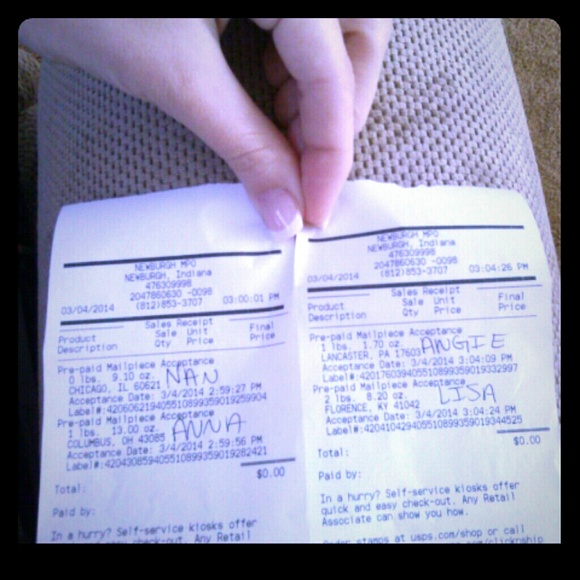 NEWBURGH MPO
NEWBURGH, Indiana
476309998
2047860630 -0098
03/04/2014 (812)853-3707 03:00:01 PM
Sales Receipt
Product Sale Unit Final
Description Qty Price Price
Pre-paid Mailpiece Acceptance
0 lbs. 9.10 oz.
CHICAGO, IL 60621 NAN
Acceptance Date: 3/4/2014 2:59:27 PM
Label#:420606219405510899359019259904
Pre-paid Mailpiece Acceptance
1 lbs. 13.00 oz.
COLUMBUS, OH 43085 ANNA
Acceptance Date: 3/4/2014 2:59:56 PM
Label#:420430859405510899359019282421
$0.00
Total:
Paid by:
In a hurry? Self-service kiosks offer
quick and easy check-out. Any Retail
NEWBURGH MPO
NEWBURGH, Indiana
476309998
2047860630 -0098
03/04/2014 (812)853-3707 03:04:26 PM
Sales Receipt
Product Sale Unit Final
Description Qty Price Price
Pre-paid Mailpiece Acceptance
1 lbs. 1.70 oz.
LANCASTER, PA 17603 ANGIE
Acceptance Date: 3/4/2014 3:04:09 PM
Label#:420176039405510899359019332997
Pre-paid Mailpiece Acceptance
2 lbs. 8.20 oz.
FLORENCE, KY 41042 LISA
Acceptance Date: 3/4/2014 3:04:24 PM
Label#:420410429405510899359019344525
$0.00
Total:
Paid by:
In a hurry? Self-service kiosks offer
quick and easy check-out. Any Retail
Associate can show you how.
Order stamps at usps.com/shop or call